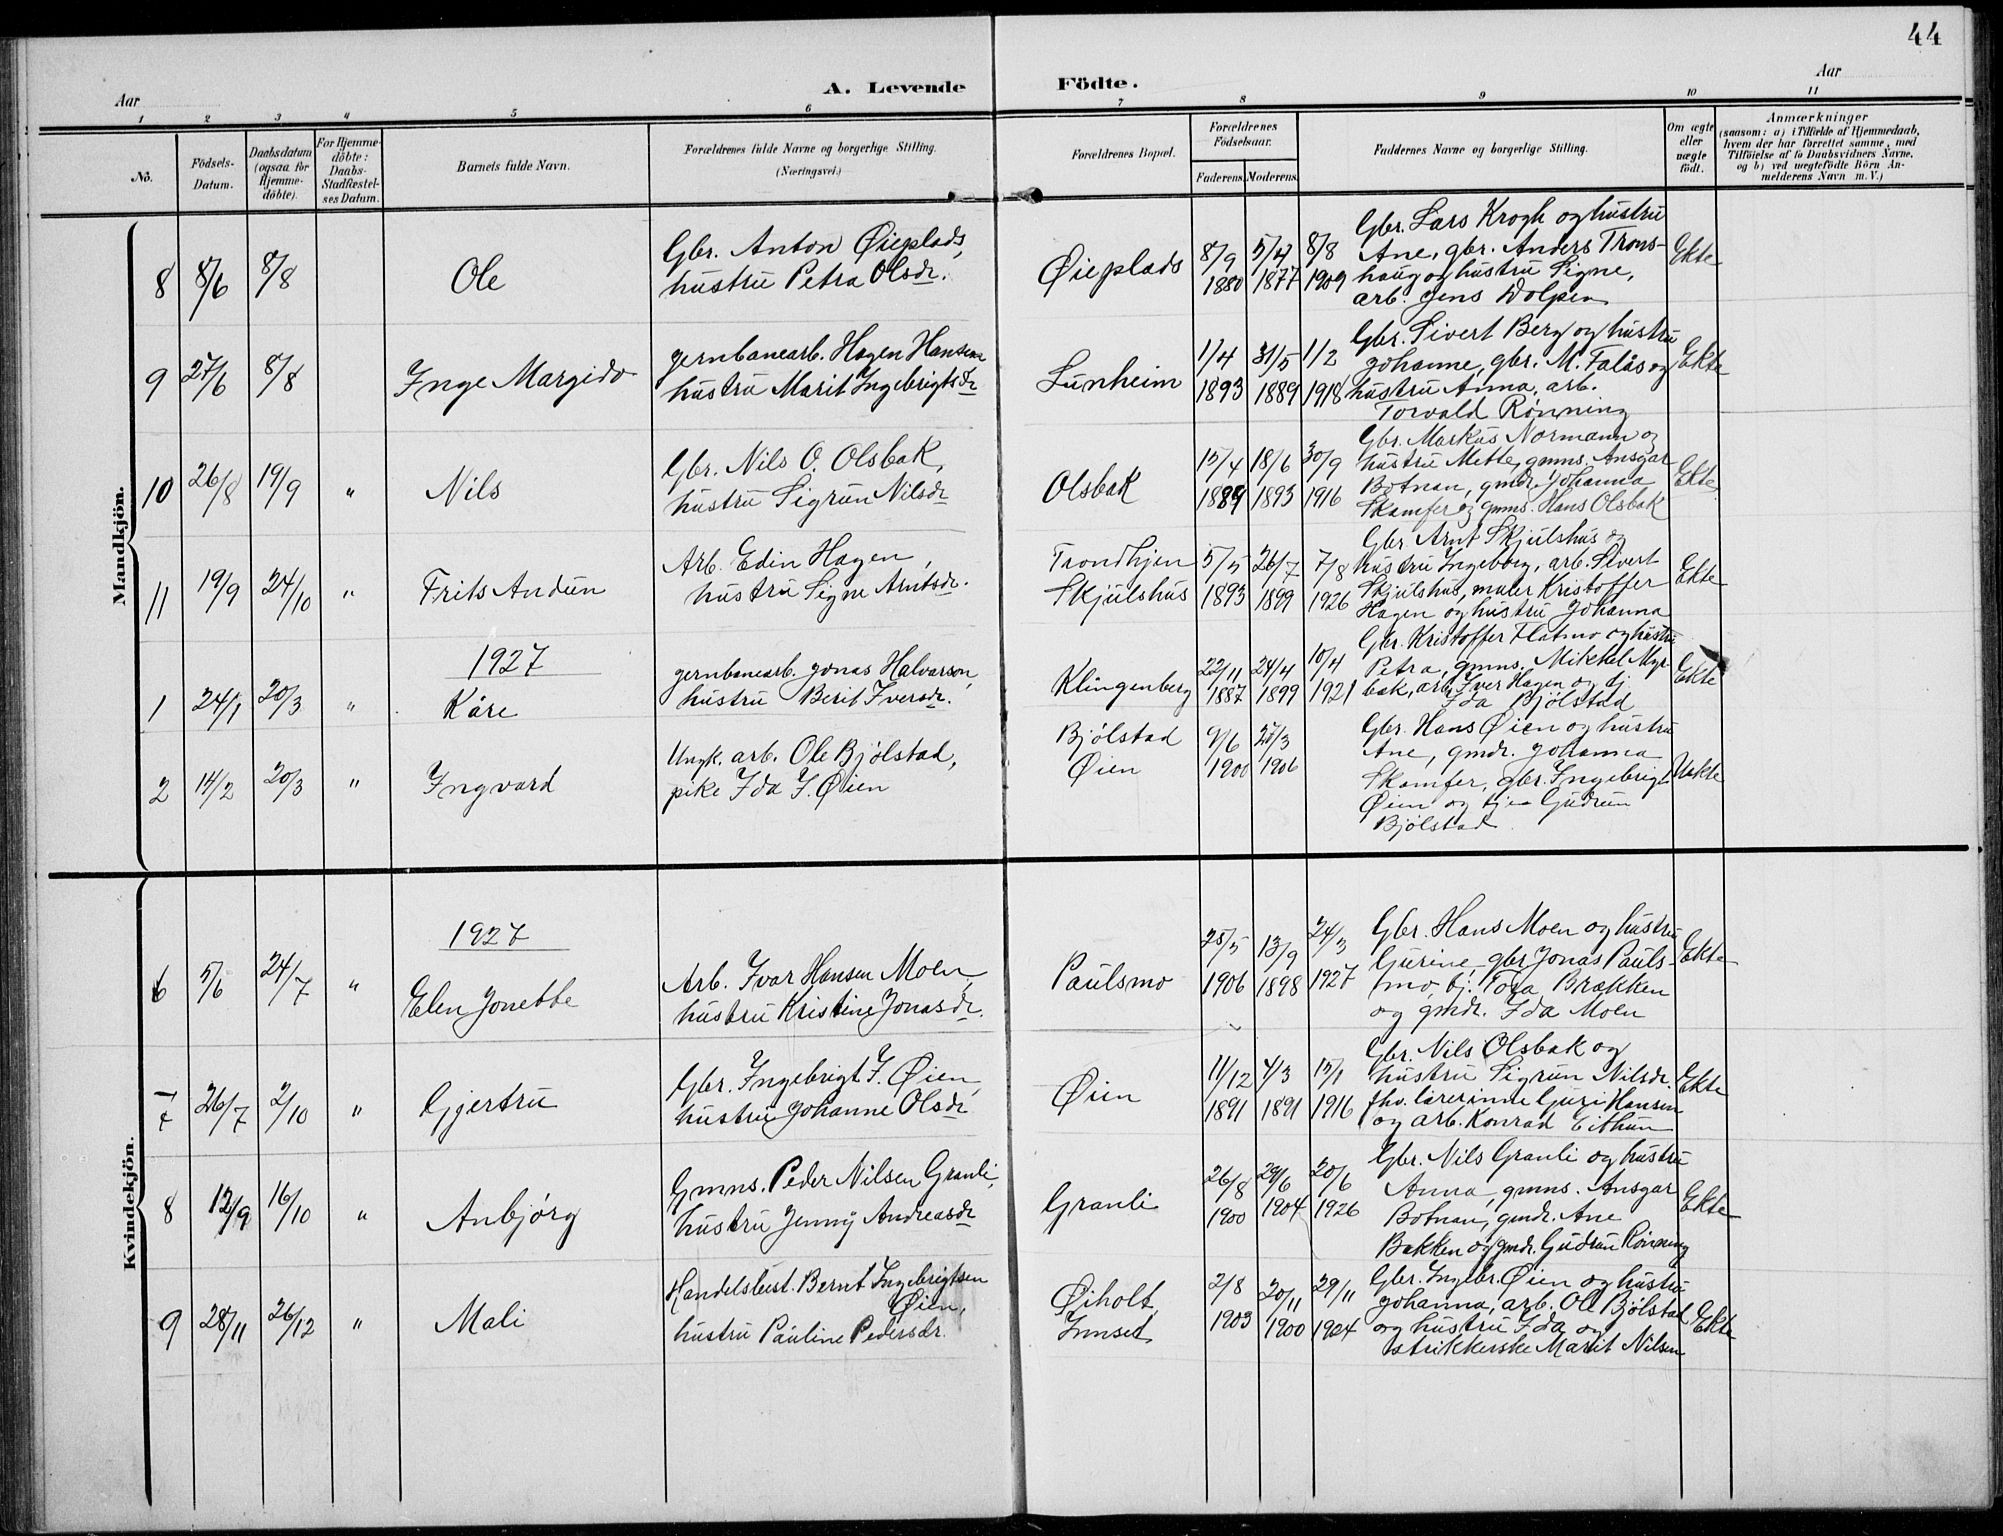 44
Aar
A. Levende
Födte.
Aar
1 2 3 4 5 6 7 8 9 10 11
No.
Födsels-Datum.
Daabsdatum (ogsaa for Hjemme-döbte).
For Hjemme-döbte: Daabs-Stadfæstel-ses Datum.
Barnets fulde Navn.
Forældrenes fulde Navne og borgerlige Stilling.
(Næringsvei.)
Forældrenes Bopæl.
Forældrenes Födselsaar.
Faderens. Moderens.
Faddernes Navne og borgerlige Stilling.
Om ægte eller uægte födt.
Anmærkninger
(saasom: a) i Tilfælde af Hjemmedaab,
hvem der har forrettet samme, med
Tilföielse af to Daabsvidners Navne,
og b) ved uægtefödte Börn An-
melderens Navn m. V.)
Mandkjön.
8 8/6 8/8 Ole
Gbr. Anton Øieplads,
hustru Petra Olsdr.
Øieplads
8/9 5/4 8/8
1880 1877 1909
Gbr. Lars Krogh og hustru
Ane, gbr. Anders Trons-
haug og hustru Signe,
arb. Jens Dolpen
Ekte
9 27/6 8/8 Inge Margido
Jernbanearb. Hagen Hansen
hustru Marit Ingebrigtsdr
Lunheim
1/4 31/5 1/2
1893 1889 1918
Gbr. Sivert Berg og hustru
Johanne, gbr. M. Falås og
hustru Anna, arb.
Torvald Rønning
Ekte
10 26/8 19/9 " Nils
Gbr. Nils O. Olsbak,
hustru Sigrun Nilsdr
Olsbak
15/4 18/6 30/9
1889 1893 1916
Gbr. Markus Normann og
hustru Mette, gmns. Ansgar
Botnan, gmdr. Johanna
Skamfer og gmns. Hans Olsbak
Ekte
11 19/9 24/10 " Frits Andun
Arb. Edin Hagen,
hustru Signe Arntsdr.
Trondhjem
Skjulshus
5/5 26/7 7/8
1893 1899 1926
Gbr Arnt Skjulshus og
hustru Ingeborg, arb. Sivert
Skjulshus, maler Kristoffer
Hagen og hustru Johanna
Ekte
1927
1 24/1 20/3 " Kåre
Jernbanearb. Jonas Halvarson,
hustru Berit Iversdr.
Klingenberg
22/11 24/4 10/4
1887 1899 1921
Gbr. Kristoffer Flatmo og hustru
Petra, gmns. Mikkel Myr-
bak, arb. Iver Hagen og tj
Ida Bjølstad
Ekte
2 14/2 20/3 " Ingvard
Ungk. arb. Ole Bjølstad,
pike Ida I. Øien
Bjølstad
Øien
9/6 25/3
1900 1906
Gbr. Hans Øien og hustru
Ane, gmdr. Johanna
Skamfer, gbr. Ingebrigt
Øien og tj Gudrun
Bjølstad
Uekte
Kvindekjön.
1927
6 5/6 24/7 " Elen Jonette
Arb. Ivar Hansen Moen,
hustru Kristine Jonasdr.
Paulsmo
25/5 13/9 24/3
1906 1898 1927
Gbr. Hans Moen og hustru
Gurine, gbr Jonas Pauls-
mo, tj. Tora Brækken
og gmdr. Ida Moen
Ekte
7 26/7 2/10 " Gjertru
Gbr. Ingebrigt I. Øien,
hustru Johanne Olsdr
Øien
11/12 4/3 15/1
1891 1891 1916
Gbr. Nils Olsbak og
hustru Sigrun Nilsdr.
fhv. lærerinne Guri Hansen
og arb. Konrad Eithun
Ekte
8 12/9 16/10 " Anbjørg
Gmns. Peder Nilsen Granli,
hustru Jenny Andreasdr
Granli
26/8 29/6 20/6
1900 1904 1926
Gbr. Nils Granli og hustru
Anna, gmns. Ansgar
Botnan, gmdr. Ane
Bakken og gmdr. Gudrun Rønning
Ekte
9 28/11 26/12 " Mali
Handelsbest. Bernt Ingebrigtsen
Øien,
hustru Pauline Pedersdr.
Øiholt,
Innset
2/8 20/11 29/11
1903 1900 1924
Gbr. Ingebr. Øien og hustru
Johanna, arb. Ole Bjølstad
og hustru Ida og
strikkerske Marit Nilsen
Ekte